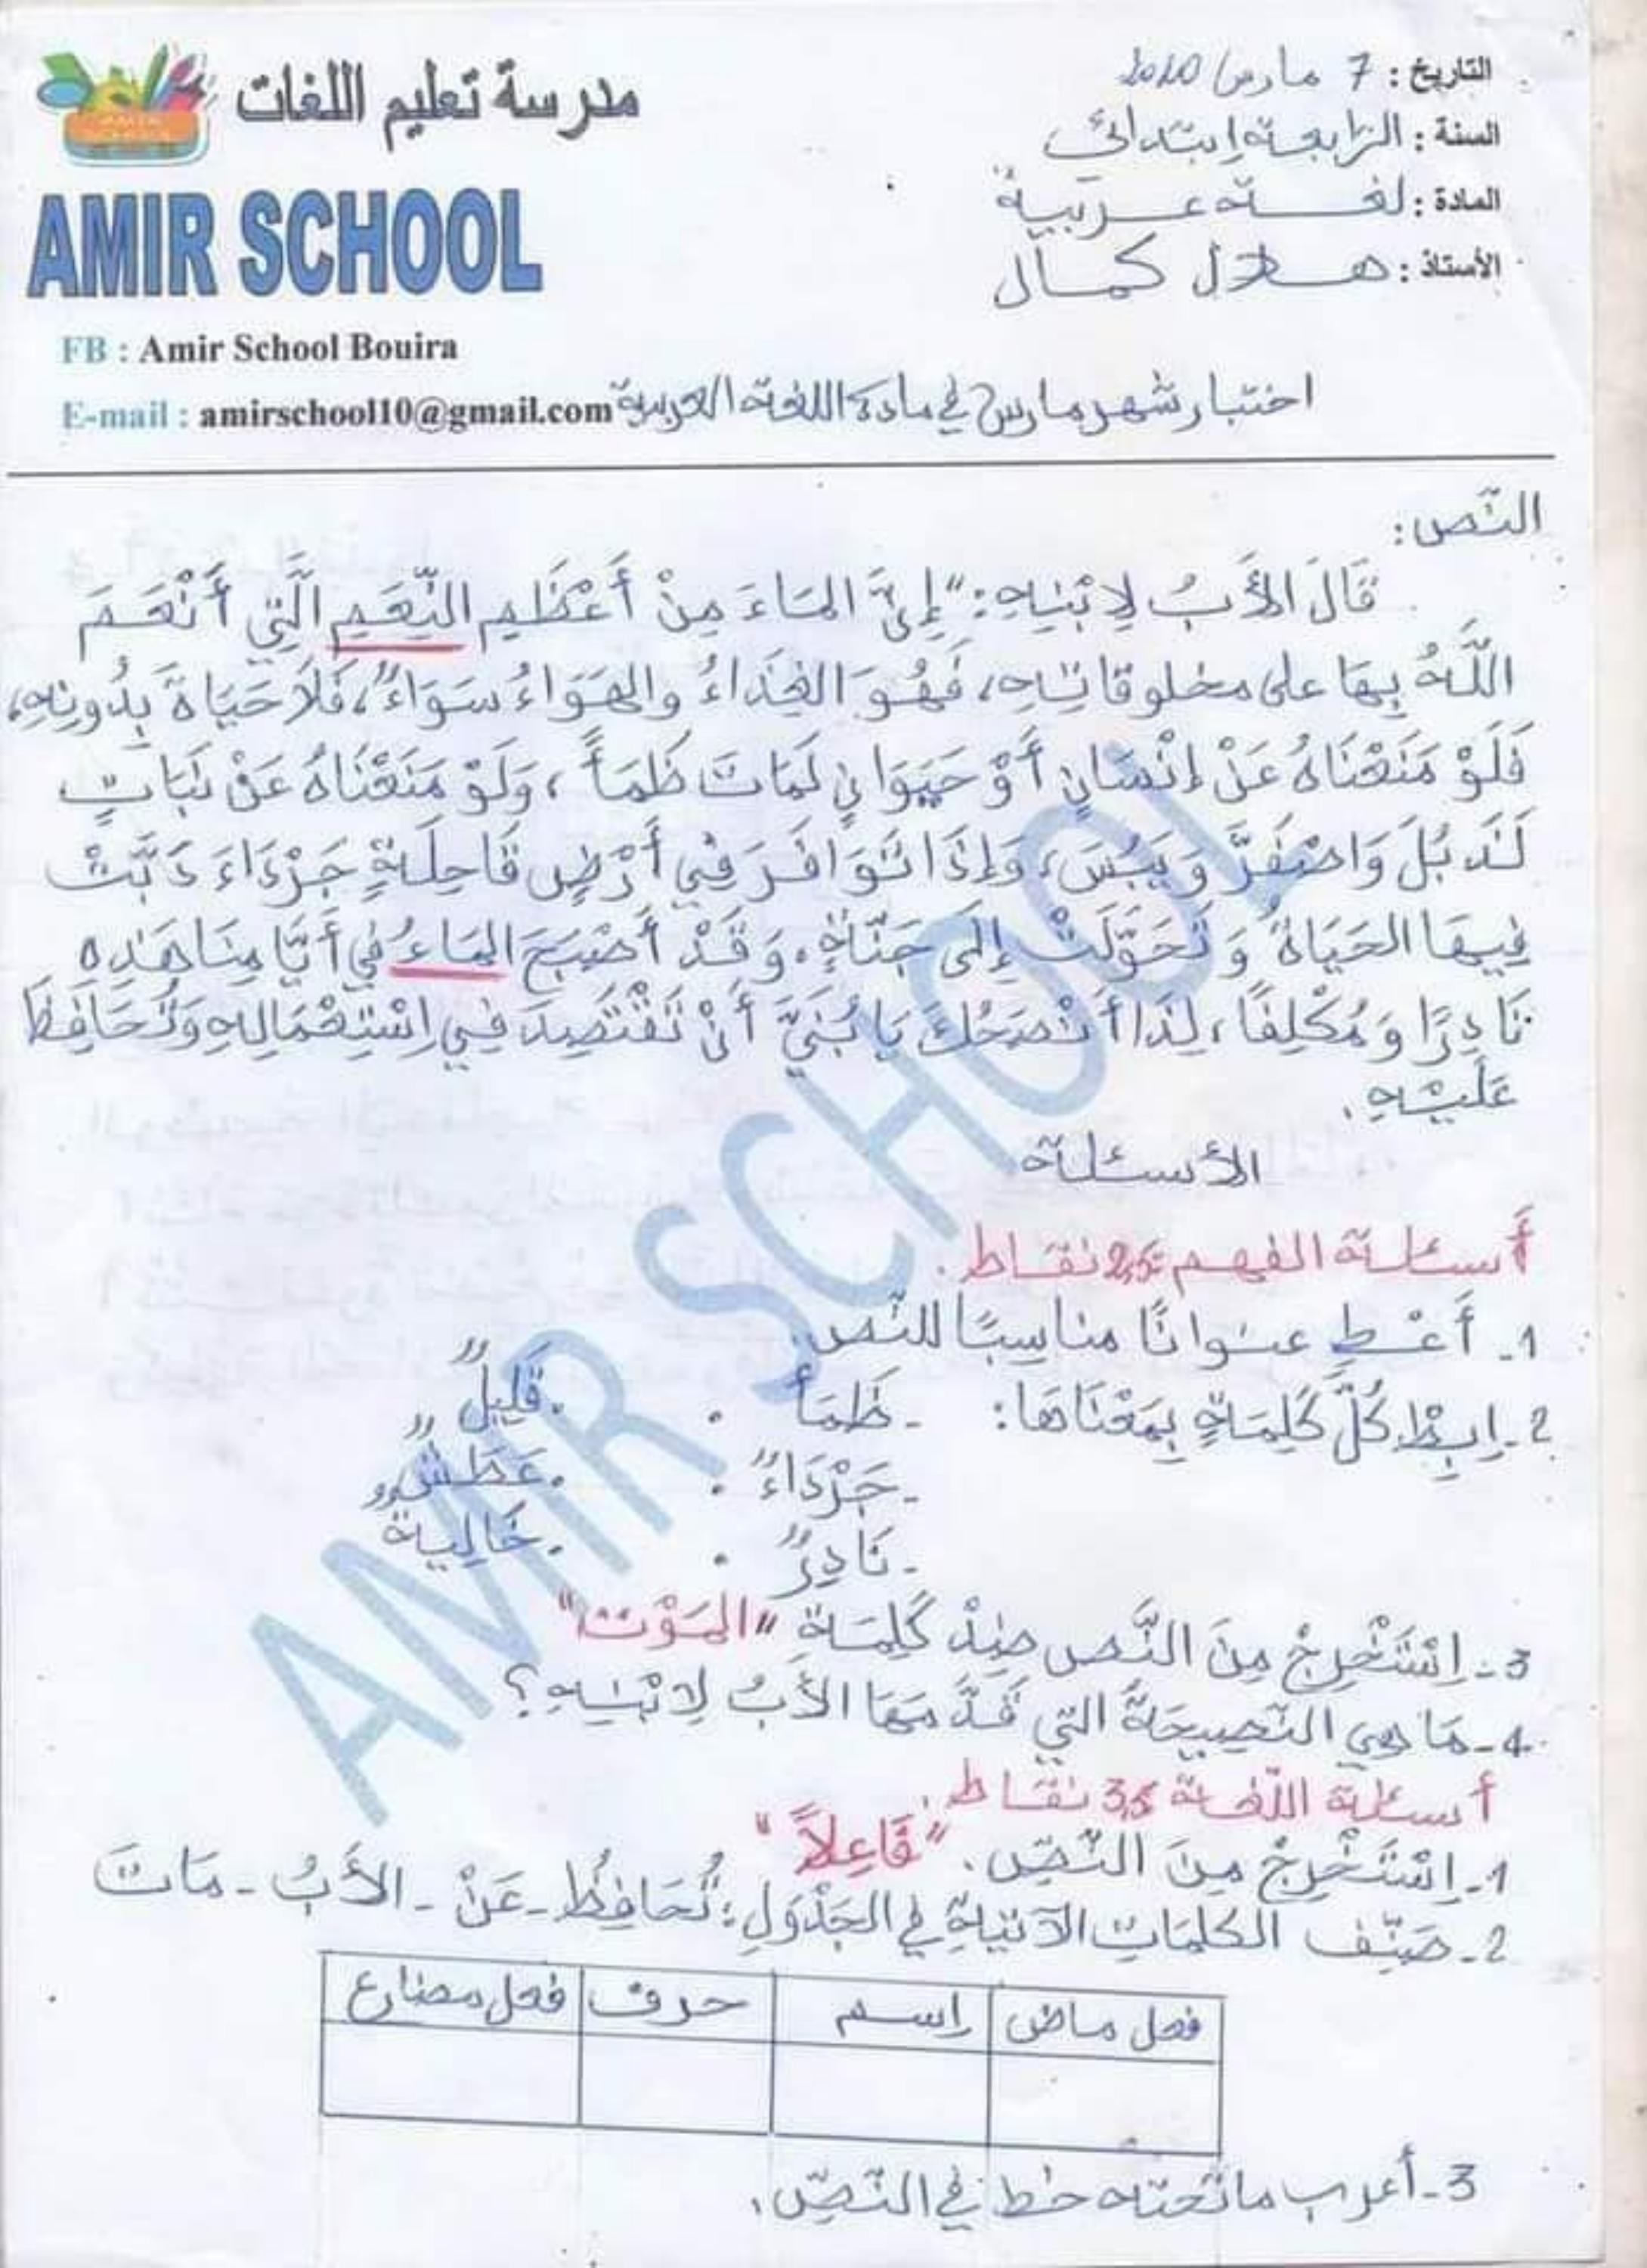 مدرسة تعليم اللغات
AMIR SCHOOL
FB : Amir School Bouira
E-mail : amirschool10@gmail.com
التاريخ : 7 مارس 2020
السنة : الرابعة ابتدائي
المادة : لغة عربية
الأستاذ : هلال كمال
اختبار شهر مارس في مادة اللغة العربية
النّص:
قَالَ الأَبُ لِابْنِهِ: "إِنَّ المَاءَ مِنْ أَعْظَمِ النِّعَمِ الَّتِي أَنْعَمَ
اللَّهُ بِهَا على مخلوقاتِهِ، فَهُوَ الغِذَاءُ والهَوَاءُ سَوَاءٌ، فَلَا حَيَاةَ بِدُونِهِ،
فَلَوْ مَنَعْنَاهُ عَنْ إِنْسَانٍ أَوْ حَيَوَانٍ لَمَاتَ ظَمَأً، وَلَوْ مَنَعْنَاهُ عَنْ نَبَاتٍ
لَذَبُلَ وَاصْفَرَّ وَيَبُسَ، وَإِذَا تَوَافَرَ فِي أَرْضٍ قَاحِلَةٍ جَرْدَاءَ دَبَّتْ
فِيهَا الحَيَاةُ وَتَحَوَّلَتْ إِلَى جَنَّةٍ. وَقَدْ أَصْبَحَ المَاءُ فِي أَيَّامِنَا هَذِهِ
نَادِرًا وَمُكْلِفًا، لِذَا أَنْصَحُكَ يَا بُنَيَّ أَنْ تَقْتَصِدَ فِي اِسْتِعْمَالِهِ وَتُحَافِظَ
عَلَيْهِ.
الأسئلة
أسئلة الفهم 2,5 نقاط.
1- أَعْطِ عنوانًا مناسِبًا للنّص.
2- اِربِطْ كُلَّ كَلِمَةٍ بِمَعْنَاهَا: - ظَمَأ . . قَلِيلٌ
- جَرْدَاءٌ . . عَطَشٌ
- نَادِرٌ . . خَالِيةٌ
3- اِسْتَخْرِجْ مِنَ النَّص ضِدْ كَلِمَة "المَوْت"
4- مَا هِي النَّصِيحَةُ التي قَدَّمَهَا الأَبُ لِابْنِهِ؟
أسئلة اللّغة 3,5 نقاط.
1- اِسْتَخْرِجْ مِنَ النَّصِّ. "فَاعِلاً"
2- صَنِّف الكلمَاتِ الآتيةِ في الجَدْوَلِ: تُحَافِظُ - عَنْ - الأَبُ - مَاتَ
فعل ماض | اِسم | حرف | فعل مضارع
3- أعرب ما تَحته خط في النّصِّ.
AMIR SCHOOL